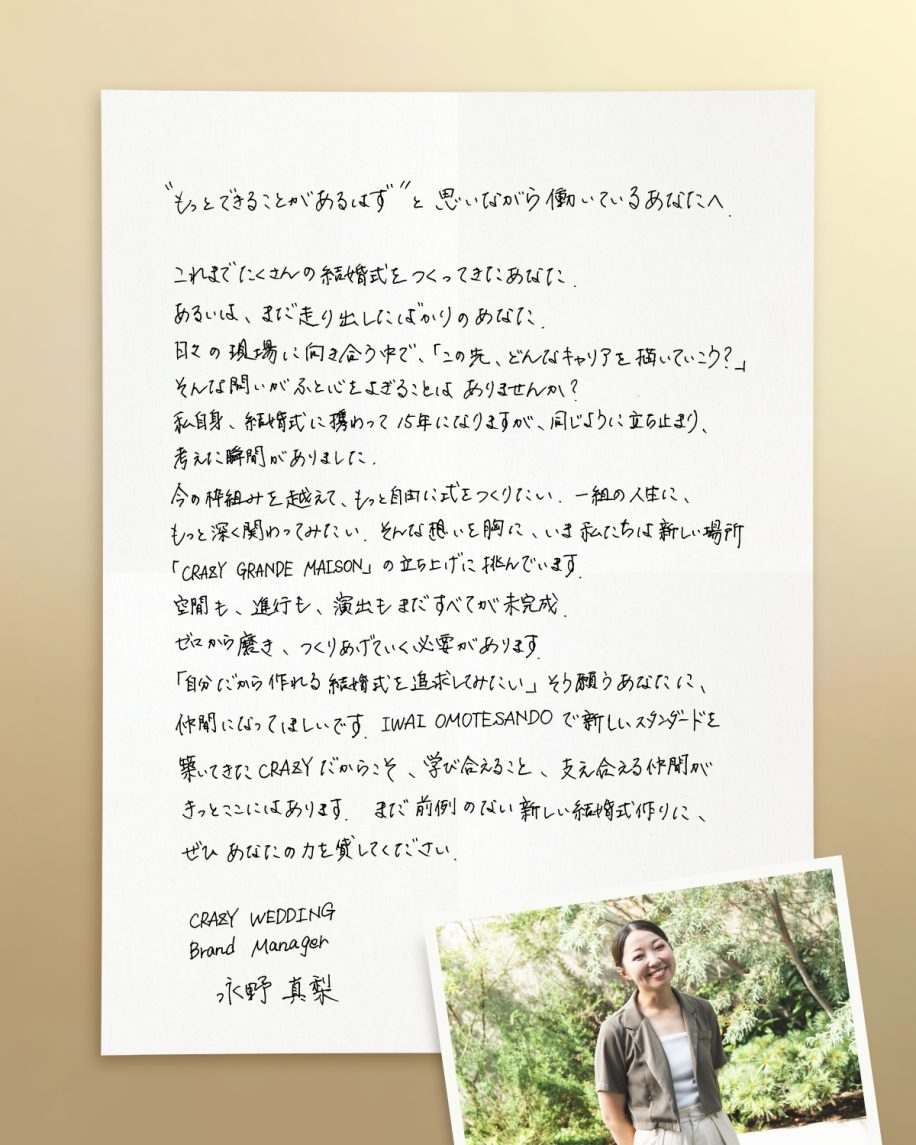 “もっとできることがあるはず”と思いながら働いているあなたへ.
これまでたくさんの結婚式をつくってきたあなた.
あるいは、まだ走り出したばかりのあなた.
日々の現場に向き合う中で、「この先、どんなキャリアを描いていこう?」
そんな問いがふと心をよぎることはありませんか?
私自身、結婚式に携わって15年になりますが、同じように立ち止まり、
考えた瞬間がありました.
今の枠組みを越えて、もっと自由に式をつくりたい. 一組の人生に、
もっと深く関わってみたい. そんな想いを胸に、いま私たちは新しい場所
「CRAZY GRANDE MAISON」の立ち上げに挑んでいます.
空間も、進行も、演出もまだすべてが未完成.
ゼロから磨き、つくりあげていく必要があります.
「自分だから作れる結婚式を追求してみたい」そう願うあなたに、
仲間になってほしいです. IWAI OMOTESANDOで新しいスタンダードを
築いてきたCRAZYだからこそ、学び合えること、支え合える仲間が
きっとここにはあります. まだ前例のない新しい結婚式作りに、
ぜひあなたの力を貸してください.
CRAZY WEDDING
Brand Manager
永野 真梨